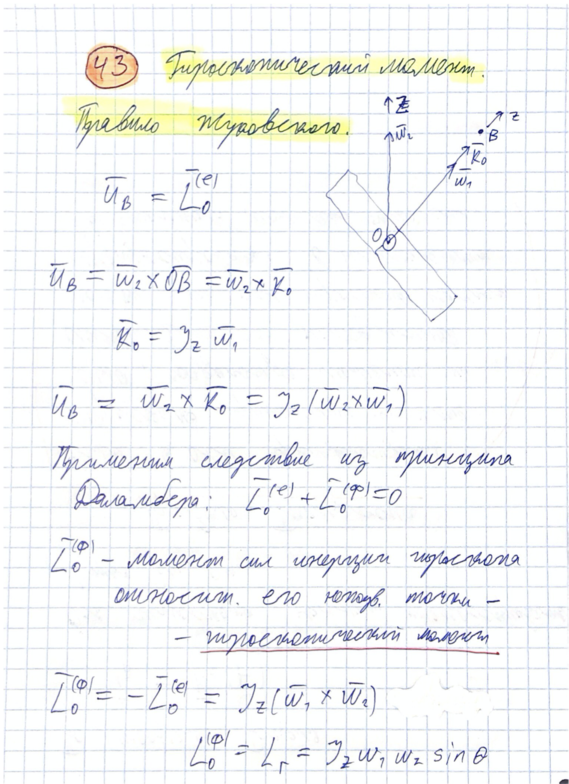 43 Гироскопический момент.
Правило Жуковского.
Z
ω̄₂
z
B
K̄₀
ω̄₁
O
ū_B = L̄₀⁽ᵉ⁾
ū_B = ω̄₂ × O̅B̅ = ω̄₂ × K̄₀
K̄₀ = J_z ω̄₁
ū_B = ω̄₂ × K̄₀ = J_z (ω̄₂ × ω̄₁)
Применим следствие из принципа
Даламбера: L̄₀⁽ᵉ⁾ + L̄₀⁽ᶲ⁾ = 0
L̄₀⁽ᶲ⁾ – момент сил инерции гироскопа
относит. его неподв. точки –
– гироскопический момент
L̄₀⁽ᶲ⁾ = – L̄₀⁽ᵉ⁾ = J_z (ω̄₁ × ω̄₂)
L₀⁽ᶲ⁾ = L_г = J_z ω₁ ω₂ sin θ